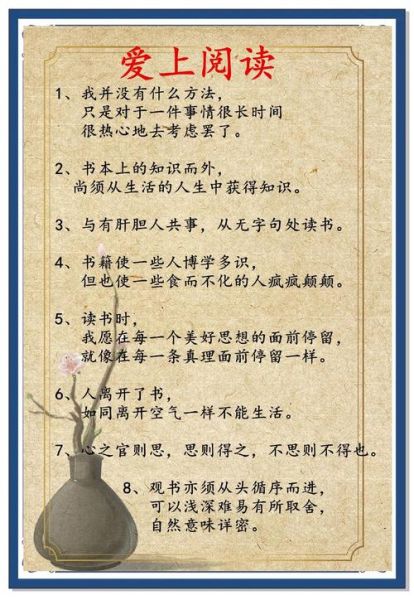 爱上阅读
1、我并没有什么方法，
只是对于一件事情很长时间
很热心地去考虑罢了。
2、书本上的知识而外，
尚须从生活的人生中获得知识。
3、与有肝胆人共事，从无字句处读书。
4、书籍使一些人博学多识，
但也使一些食而不化的人疯疯颠颠。
5、读书时，
我愿在每一个美好思想的面前停留，
就像在每一条真理面前停留一样。
6、人离开了书，
如同离开空气一样不能生活。
7、心之官则思，思则得之，不思则不得也。
8、观书亦须从头循序而进，
可以浅深难易有所取舍，
自然意味详密。